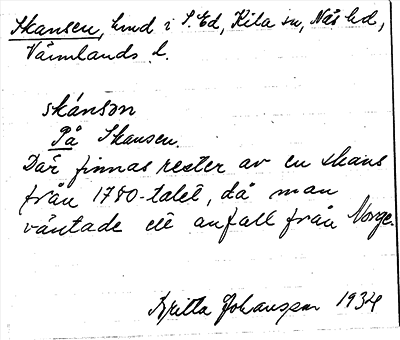 Skansen, lmd i S. Ed, Kila sn, Näs hd,
Värmlands l.
skánsən
På Skansen.
Där finnas rester av en skans
från 1780-talet, då man
väntade ett anfall från Norge.
Britta Johansson 1934